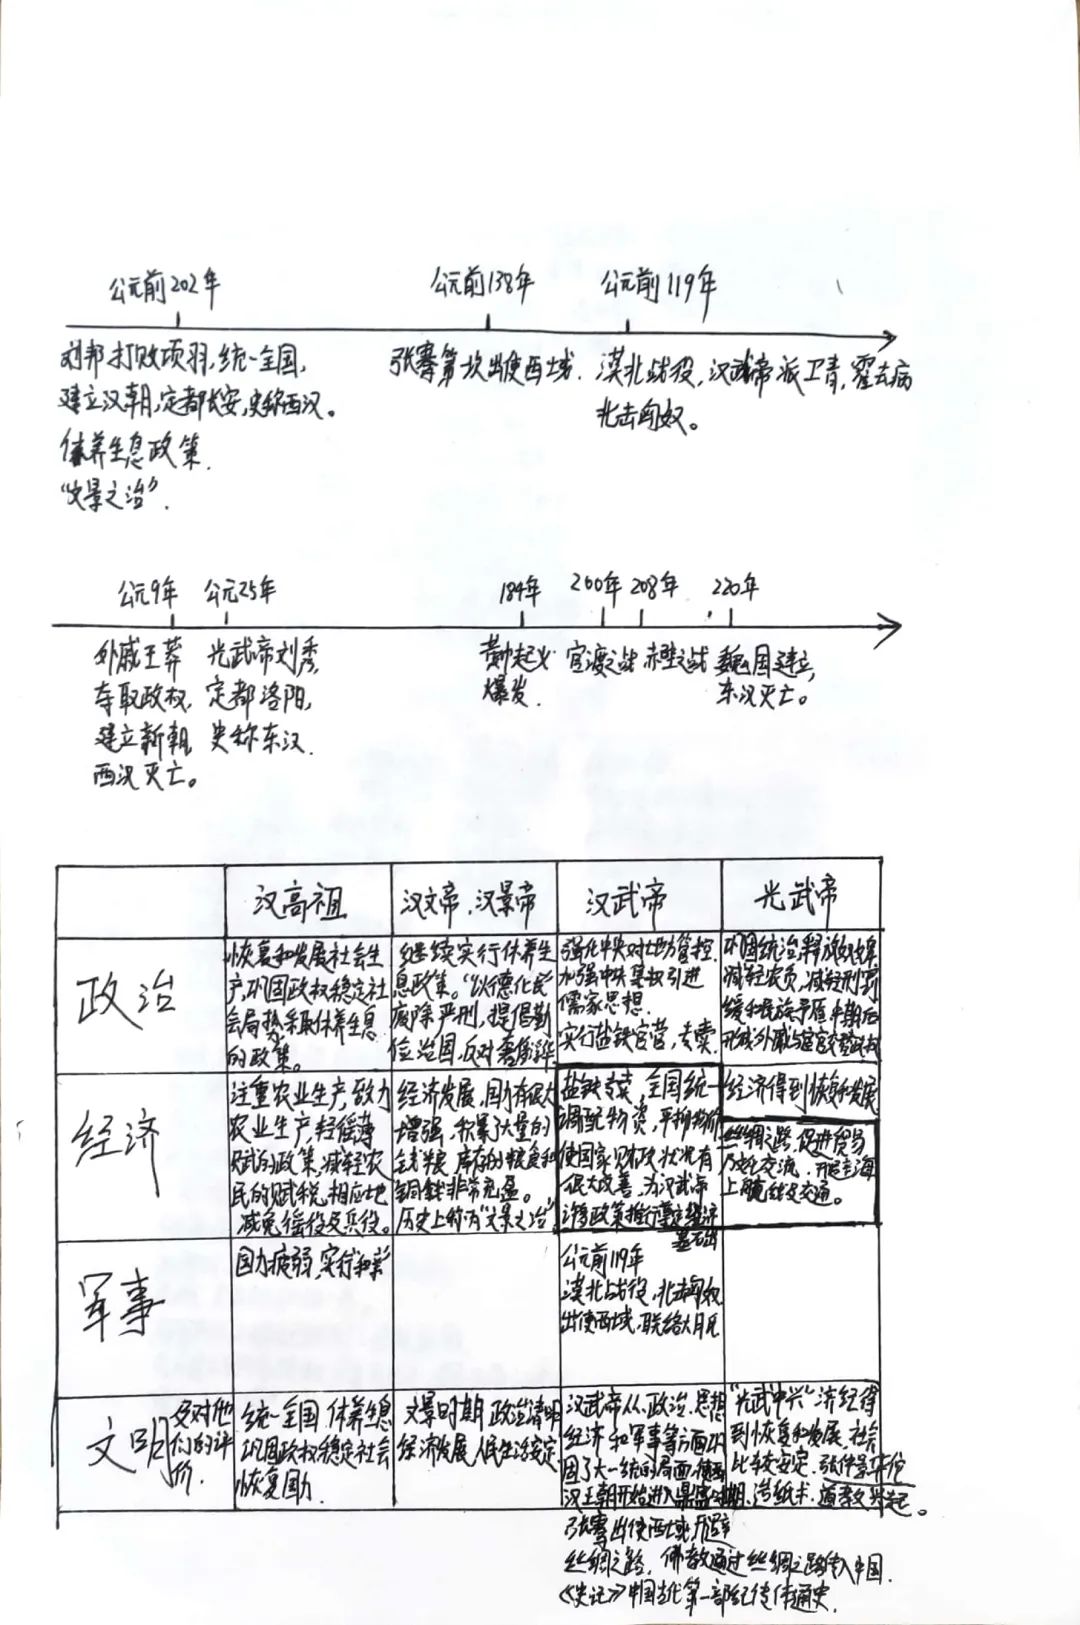 公元前202年
公元前138年
公元前119年
刘邦打败项羽,统一全国,
建立汉朝,定都长安,史称西汉。
休养生息政策.
“文景之治”.
张骞第一次出使西域.
漠北战役,汉武帝派卫青,霍去病
北击匈奴。
公元9年
公元25年
184年
200年
208年
220年
外戚王莽
夺取政权,
建立新朝,
西汉灭亡。
光武帝刘秀,
定都洛阳,
史称东汉.
黄巾起义
爆发.
官渡之战
赤壁之战
魏国建立,
东汉灭亡。
汉高祖
汉文帝,汉景帝
汉武帝
光武帝
政治
恢复和发展社会生
产,巩固政权稳定社
会局势采取休养生息
的政策。
继续实行休养生
息政策。“以德化民”
废除严刑,提倡勤
俭治国,反对奢侈
强化中央对地方管控.
加强中央集权引进
儒家思想.
实行盐铁官营,专卖.
巩固统治,释放奴婢
减轻农负,减轻刑罚
缓和民族矛盾中期后
形成外戚与宦官交替
经济
注重农业生产,致力
农业生产,轻徭薄
赋的政策,减轻农
民的赋税,相应地
减免徭役及兵役。
经济发展,国力有很大
增强,积累了大量的
钱粮,库存的粮食和
铜钱非常充盈。
历史上称为“文景之治”
盐铁专卖,全国统一
调配物资,平抑物价
使国家财政状况有
很大改善,为汉武帝
许多政策推行奠定经济
基础
经济得到恢复和发展
丝绸之路,促进贸易
文化交流.开辟海
上航线及交通。
军事
国力疲弱,实行和亲
公元前119年
漠北战役,北击匈奴
出使西域,联络大月氏
文明
及对他
们的评
价.
统一全国 休养生息
巩固政权稳定社会
恢复国力.
文景时期 政治清明
经济发展 人民生活安定
汉武帝从政治、思想
经济 和军事等方面巩
固了大一统的局面,使西
汉王朝开始进入鼎盛时期.
张骞出使西域,开辟
丝绸之路, 佛教通过丝绸之路传入中国.
《史记》中国古代第一部纪传体通史.
“光武中兴”济经得
到恢复和发展,社会
比较安定.张仲景华佗
造纸术.道教兴起。